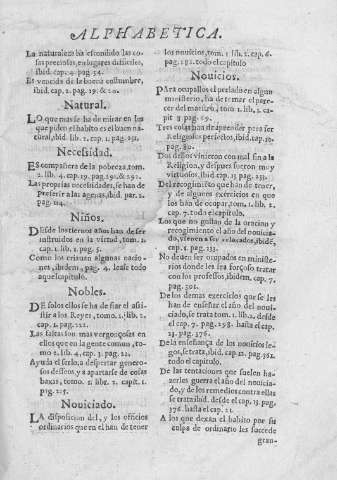 ALPHABETICA.
La naturaleza ha escondido las co-
sas preciosas, en lugares dificiles,
ibid. cap. 4. pag. 54.
Es vencida de la buena costumbre,
ibid. cap. 2. pag. 19. & 20.
Natural.
LO que mas se ha de mirar en los
que piden el habito es el buen na-
tural, ibid. lib. 2. cap. 1. pag.
Necessidad.
ES compañera de la pobreza, tom.
2. lib. 4. cap. 19. pag. 291. & 292.
Las proprias necessidades, se han de
preferir a las agenas, ibid. par. 2.
pag. 114.
Niños.
DEsde los tiernos años han de ser
instruidos en la virtud, tom. 1.
cap. 1. lib. 2. pag. 5.
Como los criauan algunas nacio-
nes, ibidem, pag. 4. lease todo
aquel capitulo.
Nobles.
DE solos ellos se ha de fiar el assi-
stir a los Reyes, tomo. 1. lib. 2.
cap. 1. pag. 121.
Las faltas son mas vergonçosas en
ellos que en la gente comun, to-
mo 2. lib. 4. cap. 3. pag. 22.
Ayuda el serlo, a despertar genero-
sos desseos, y a apartarse de cosas
baxas, tomo. 1. libr. 2. capit. 1.
pag. 215.
Nouiciado.
LA disposicion del, y los officios
ordinarios que en el han de tener
los nouicios, tom. 1. lib. 2. cap. 6.
pag. 282. todo el capitulo
Nouicios.
PAra ocupallos el prelado en algun
ministerio, ha de tomar el pare-
cer del maestro, tom 1. lib. 2. ca-
pit 8 pag. 69.
Tres cosas han de aprender para ser
Religiosos perfectos, ibid. cap. 10.
pag. 80.
Dos destos vinieron con mal fin a la
Religion, y despues fueron muy
virtuosos, ibid cap 13 pag. 233.
Del recogimiento que han de tener,
y de algunos exercicios en que
los han de ocupar, tom. 1. lib. 2
cap. 7. todo el capitulo.
Los que no gustan de la oracion y
recogimiento el año del nouicia-
do, vienen a ser relaxados, ibidē,
cap. 1. pag. 133.
No deuen ser ocupados en ministe-
rios donde les sea forçoso tratar
con los professos, ibidem, cap. 7.
pag. 301.
De los demas exercicios que se les
han de enseñar el año del nouicia-
do, se trata tom. 1. lib. 2. desde
el cap. 7. pag. 298. hasta el cap.
13. pag. 376.
De la enseñança de los nouicios le-
gos, se trata, ibid. cap. 12. pag. 362.
todo el capitulo.
De las tentaciones que suelen ha-
zerles guerra el año del nouicia-
do, y de los remedios contra ellas
se trata ibid. desde el cap. 13. pag.
376. hasta el cap. 21.
A los que dexan el habito por su
culpa de ordinario les succede
gran-